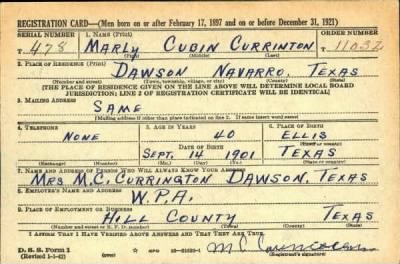 REGISTRATION CARD—(Men born on or after February 17, 1897 and on or before December 31, 1921)
SERIAL NUMBER 1. NAME (Print) ORDER NUMBER
T 478 MARLY CUBIN CURRINTON 11032
(First) (Middle) (Last)
2. PLACE OF RESIDENCE (Print)
DAWSON NAVARRO, TEXAS
(Number and street) (Town, township, village, or city) (County) (State)
[THE PLACE OF RESIDENCE GIVEN ON THE LINE ABOVE WILL DETERMINE LOCAL BOARD
JURISDICTION; LINE 2 OF REGISTRATION CERTIFICATE WILL BE IDENTICAL]
3. MAILING ADDRESS
SAME
[Mailing address if other than place indicated on line 2. If same insert word same]
4. TELEPHONE 5. AGE IN YEARS 6. PLACE OF BIRTH
NONE 40 ELLIS
DATE OF BIRTH (Town or county)
SEPT. 14 1901 TEXAS
(Exchange) (Number) (Mo.) (Day) (Yr.) (State or country)
7. NAME AND ADDRESS OF PERSON WHO WILL ALWAYS KNOW YOUR ADDRESS
MRS M.C. CURRINGTON DAWSON, TEXAS
8. EMPLOYER'S NAME AND ADDRESS
W.P.A.
9. PLACE OF EMPLOYMENT OR BUSINESS
HILL COUNTY TEXAS
(Number and street or R. F. D. number) (Town) (County) (State)
I AFFIRM THAT I HAVE VERIFIED ABOVE ANSWERS AND THAT THEY ARE TRUE.
D. S. S. Form 1
(Revised 1-1-42) GPO M C
(Registrant's signature)